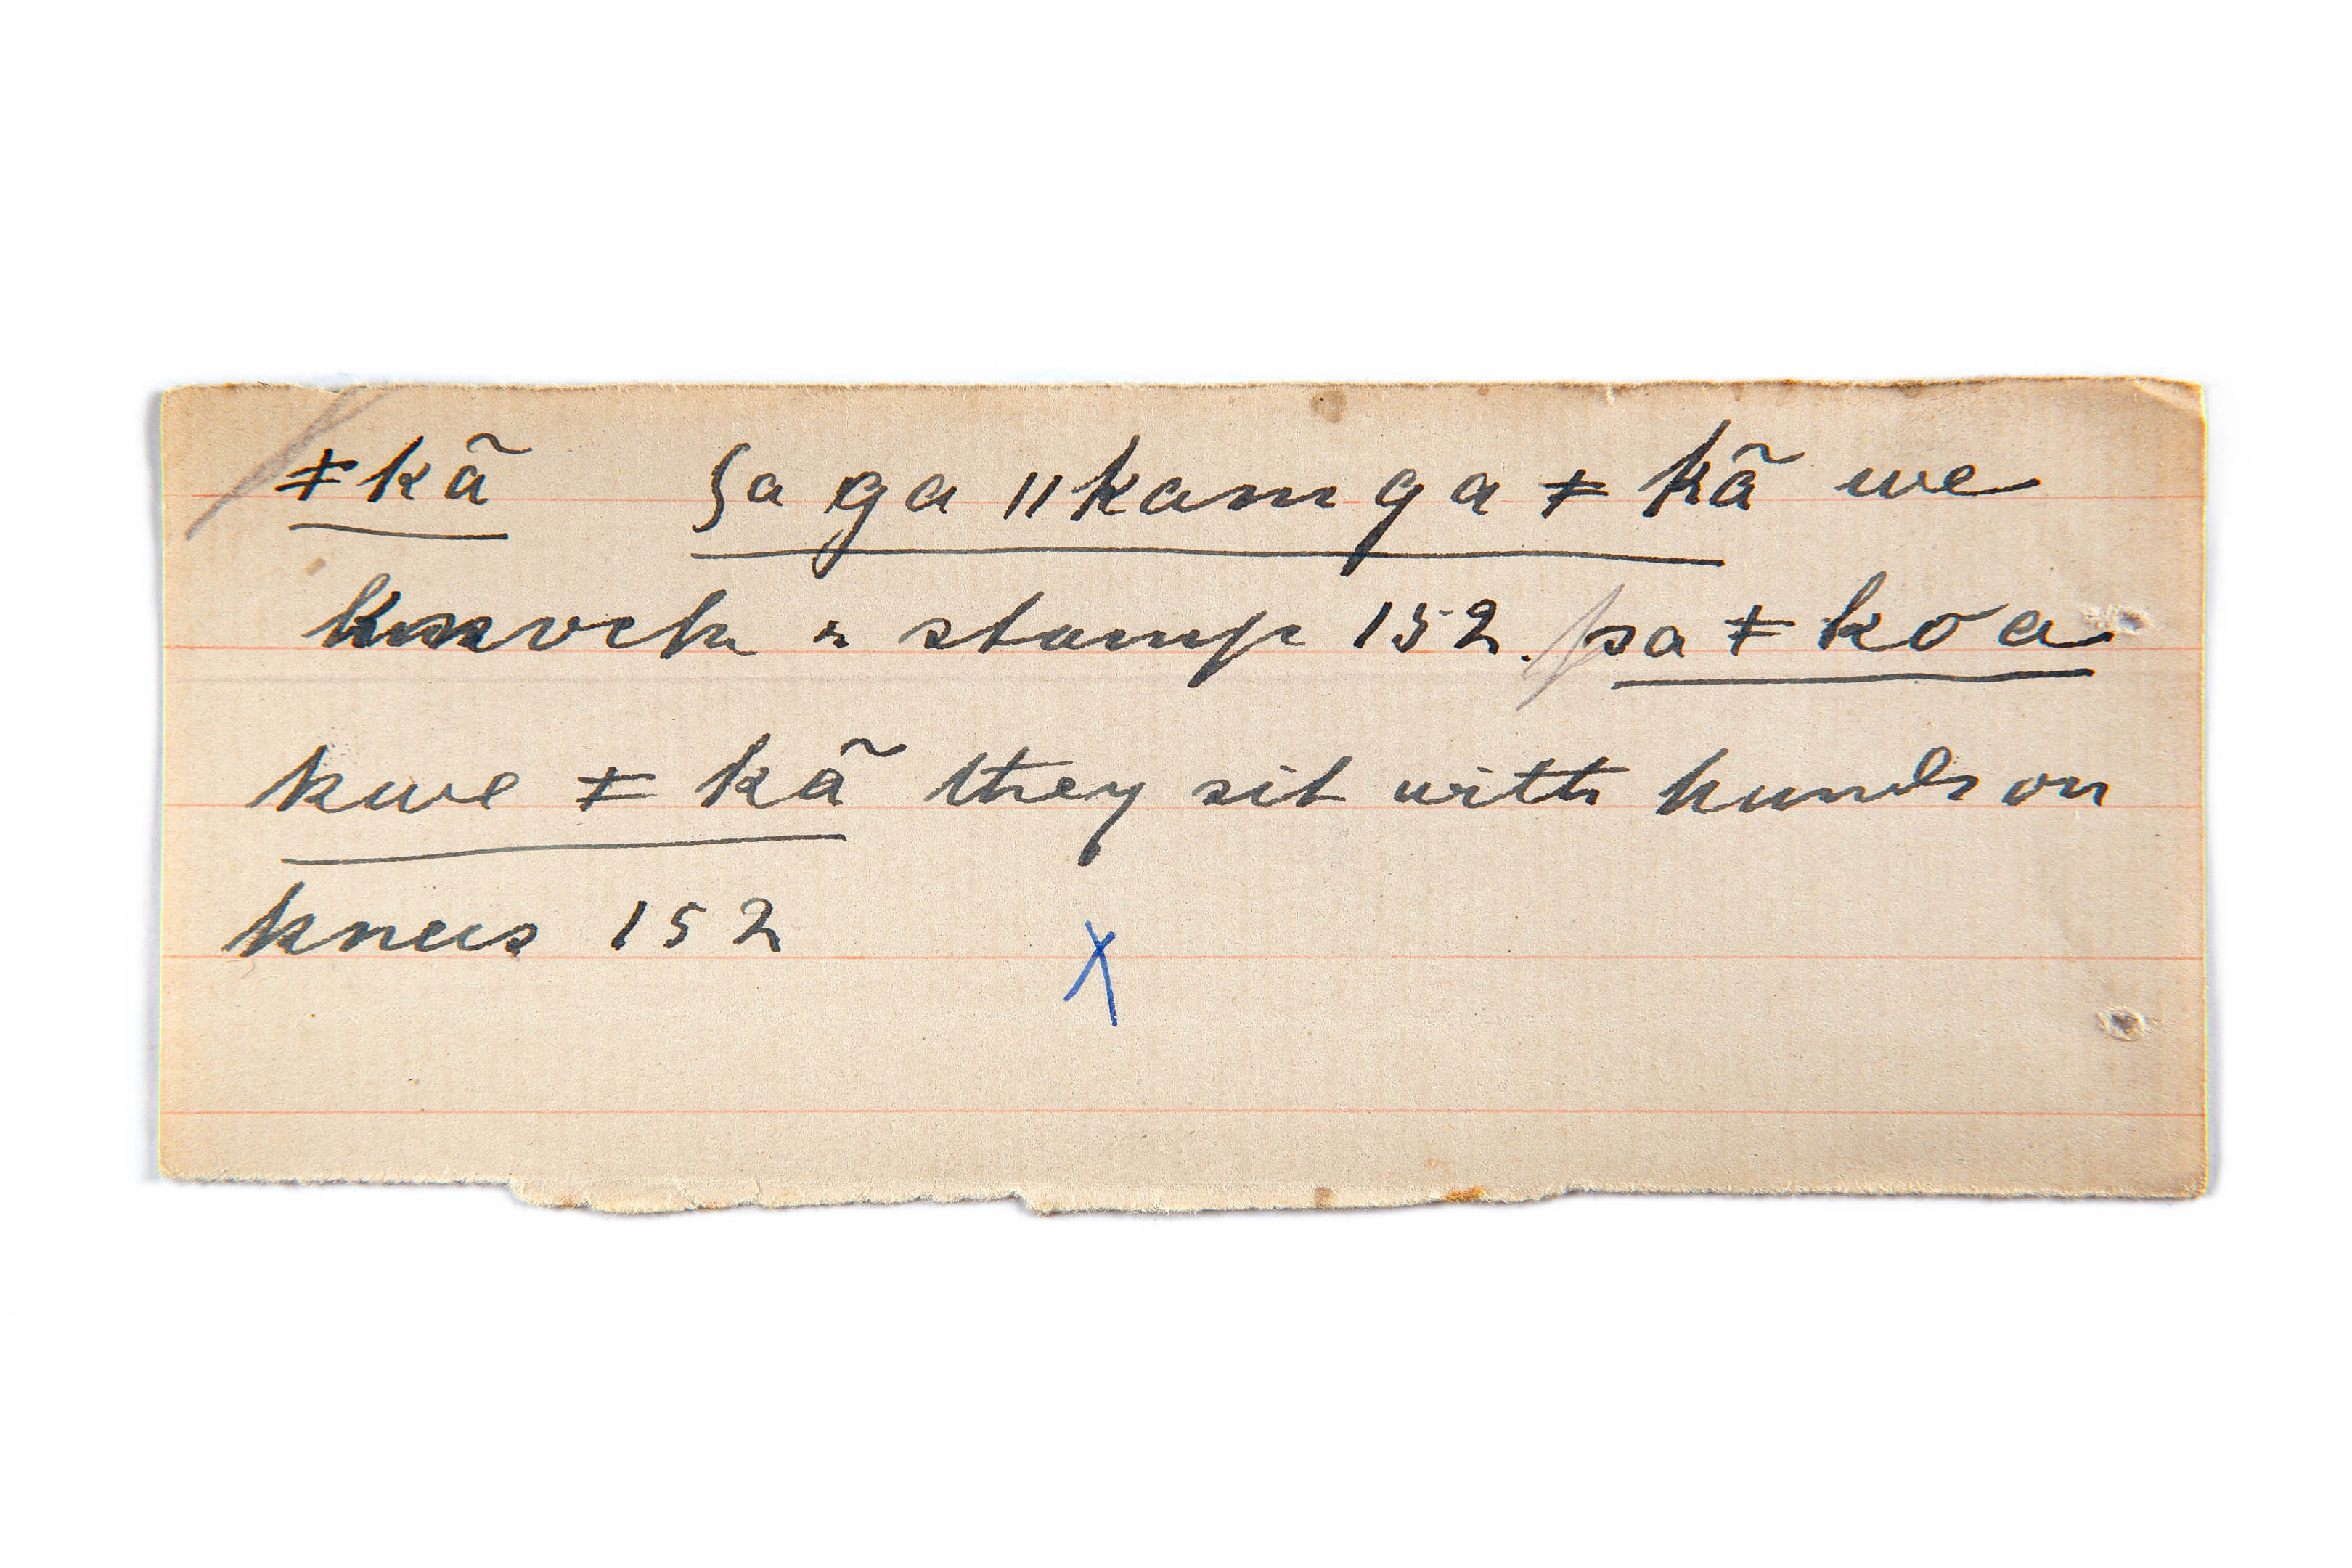 ǂkã ʃa ga ǁkamga ǂ kã we
knock & stamp 152. sa ǂ koa
kwe ǂ kã they sit with hands on
knees 152
X